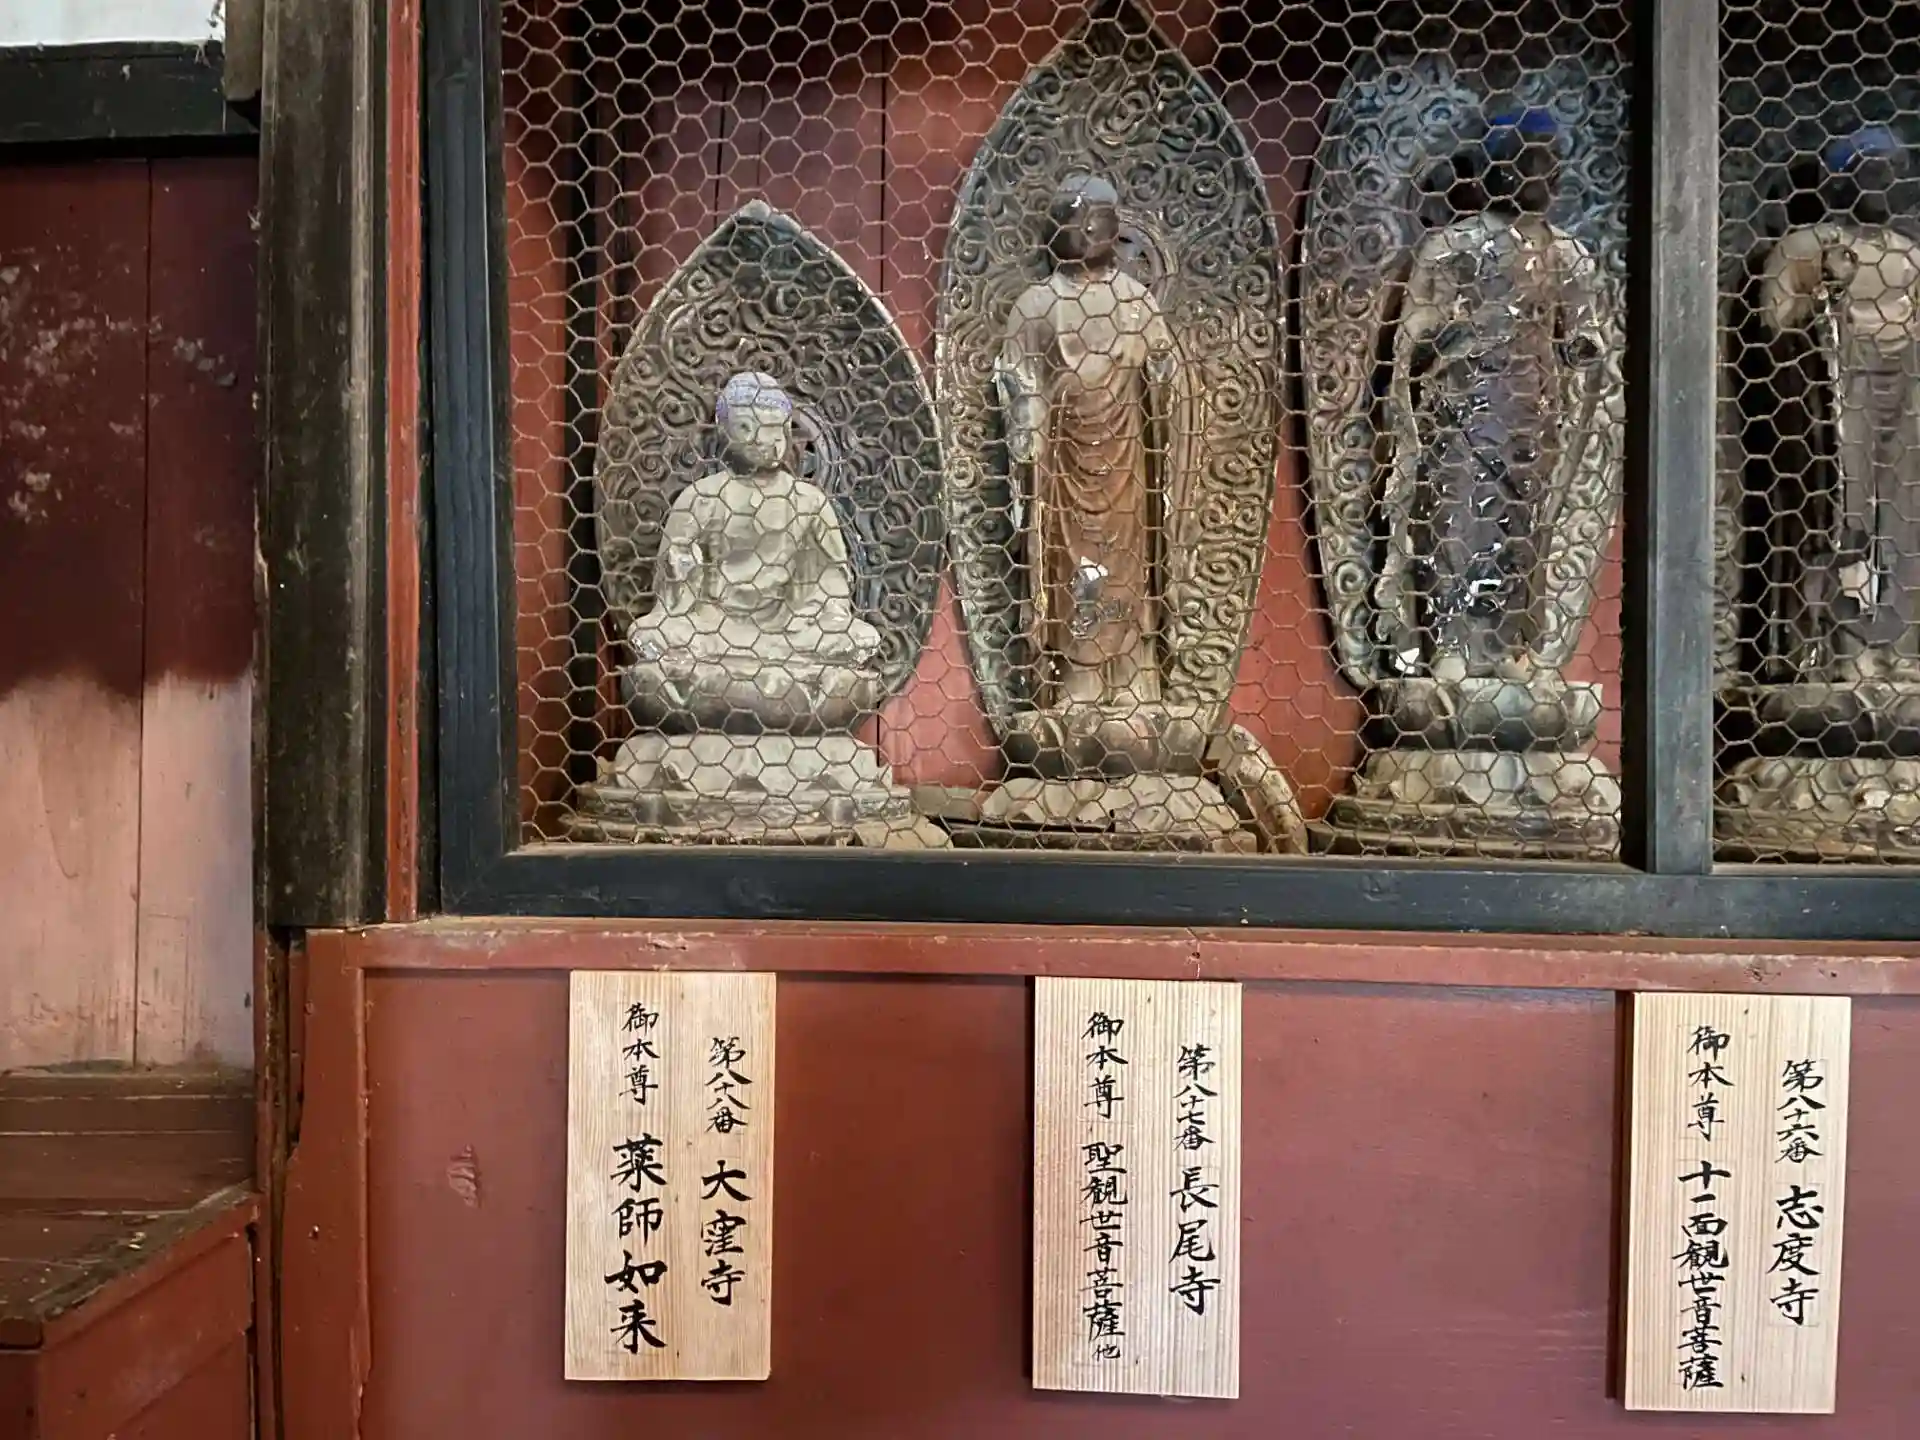 第八十八番 大窪寺
御本尊 薬師如来
第八十七番 長尾寺
御本尊 聖観世音菩薩他
第八十六番 志度寺
御本尊 十一面観世音菩薩